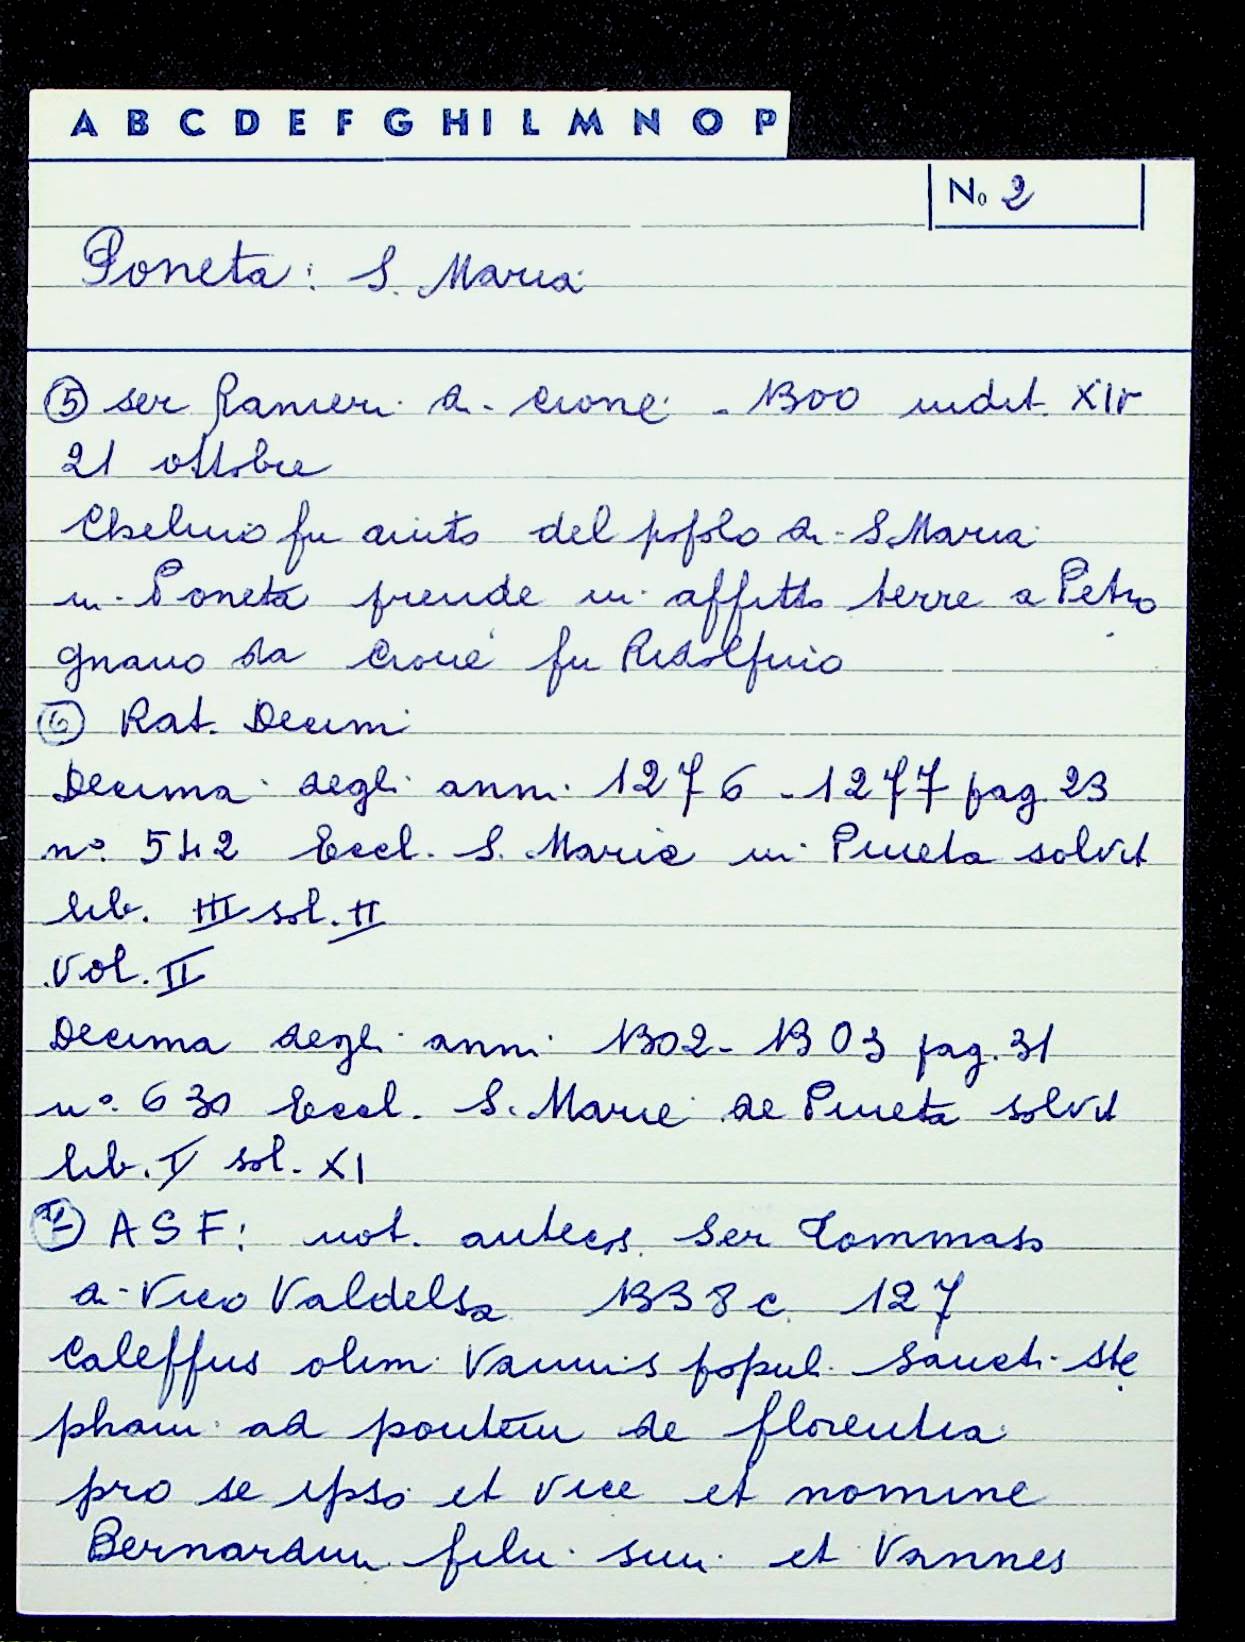 A B C D E F G H I L M N O P
No 2
Poneta: S. Maria
⑤ ser Ranieri di Cione - 1300 indit. XIV
21 ottobre
Chelino fu aiuto del popolo di S. Maria
in Poneta prende in affitto terre a Petro
gnano da Cione fu Ridolfino
⑥ Rat. Decim
Decima degli anni 1276 - 1277 pag. 23
n°. 542 Eccl. S. Marie in Pineta solvit
lib. III sol. II
Vol. II
Decima degli anni 1302 - 1303 pag. 31
n°. 630 Eccl. S. Marie de Pineta solvit
lib. V sol. XI
⑦ ASF: not. antecos. Ser Tommaso
di Vico Valdelsa 1338 c. 127
Caleffus olim Vannis popul. Sancti Ste
phani ad pontem de florentia
pro se ipso et vice et nomine
Bernardini filii sui et Vannes